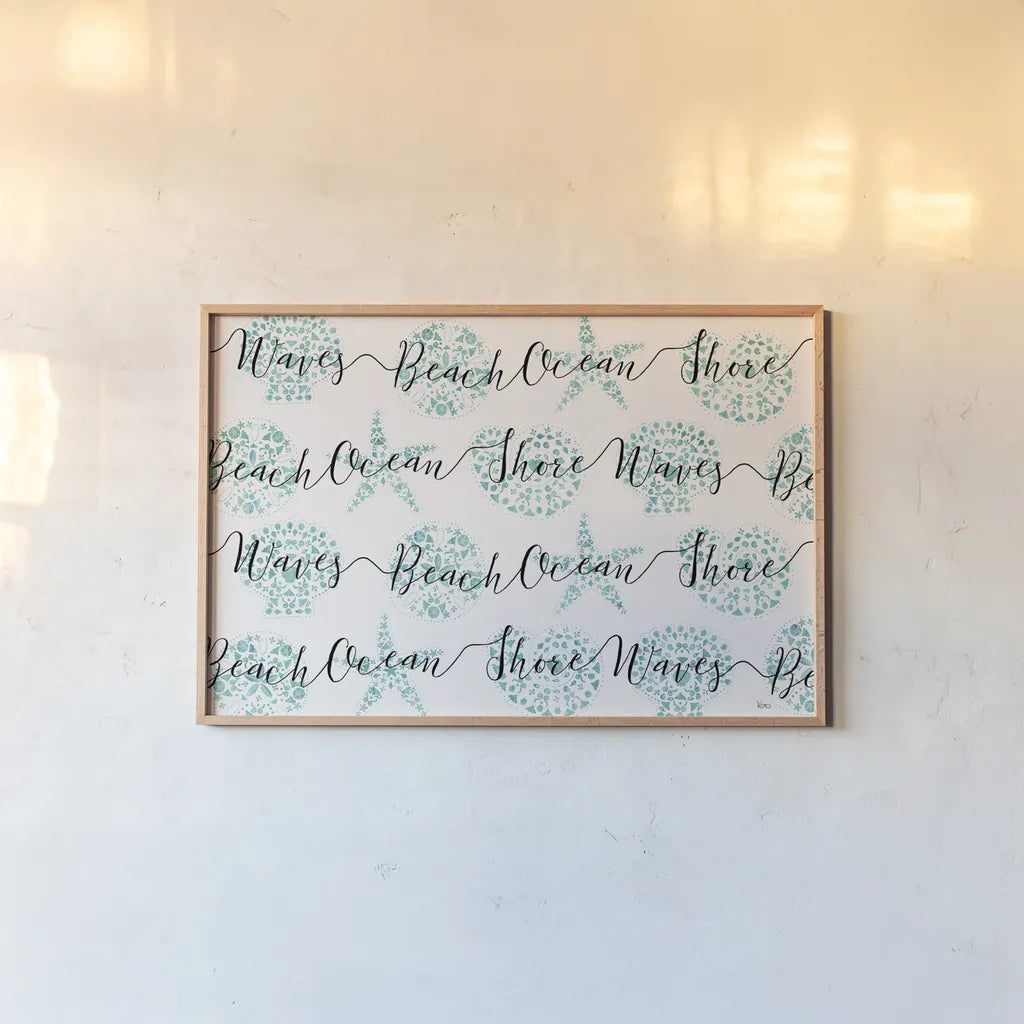 Waves Beach Ocean Shore
Beach Ocean Shore Waves Be
Waves Beach Ocean Shore
Beach Ocean Shore Waves Be